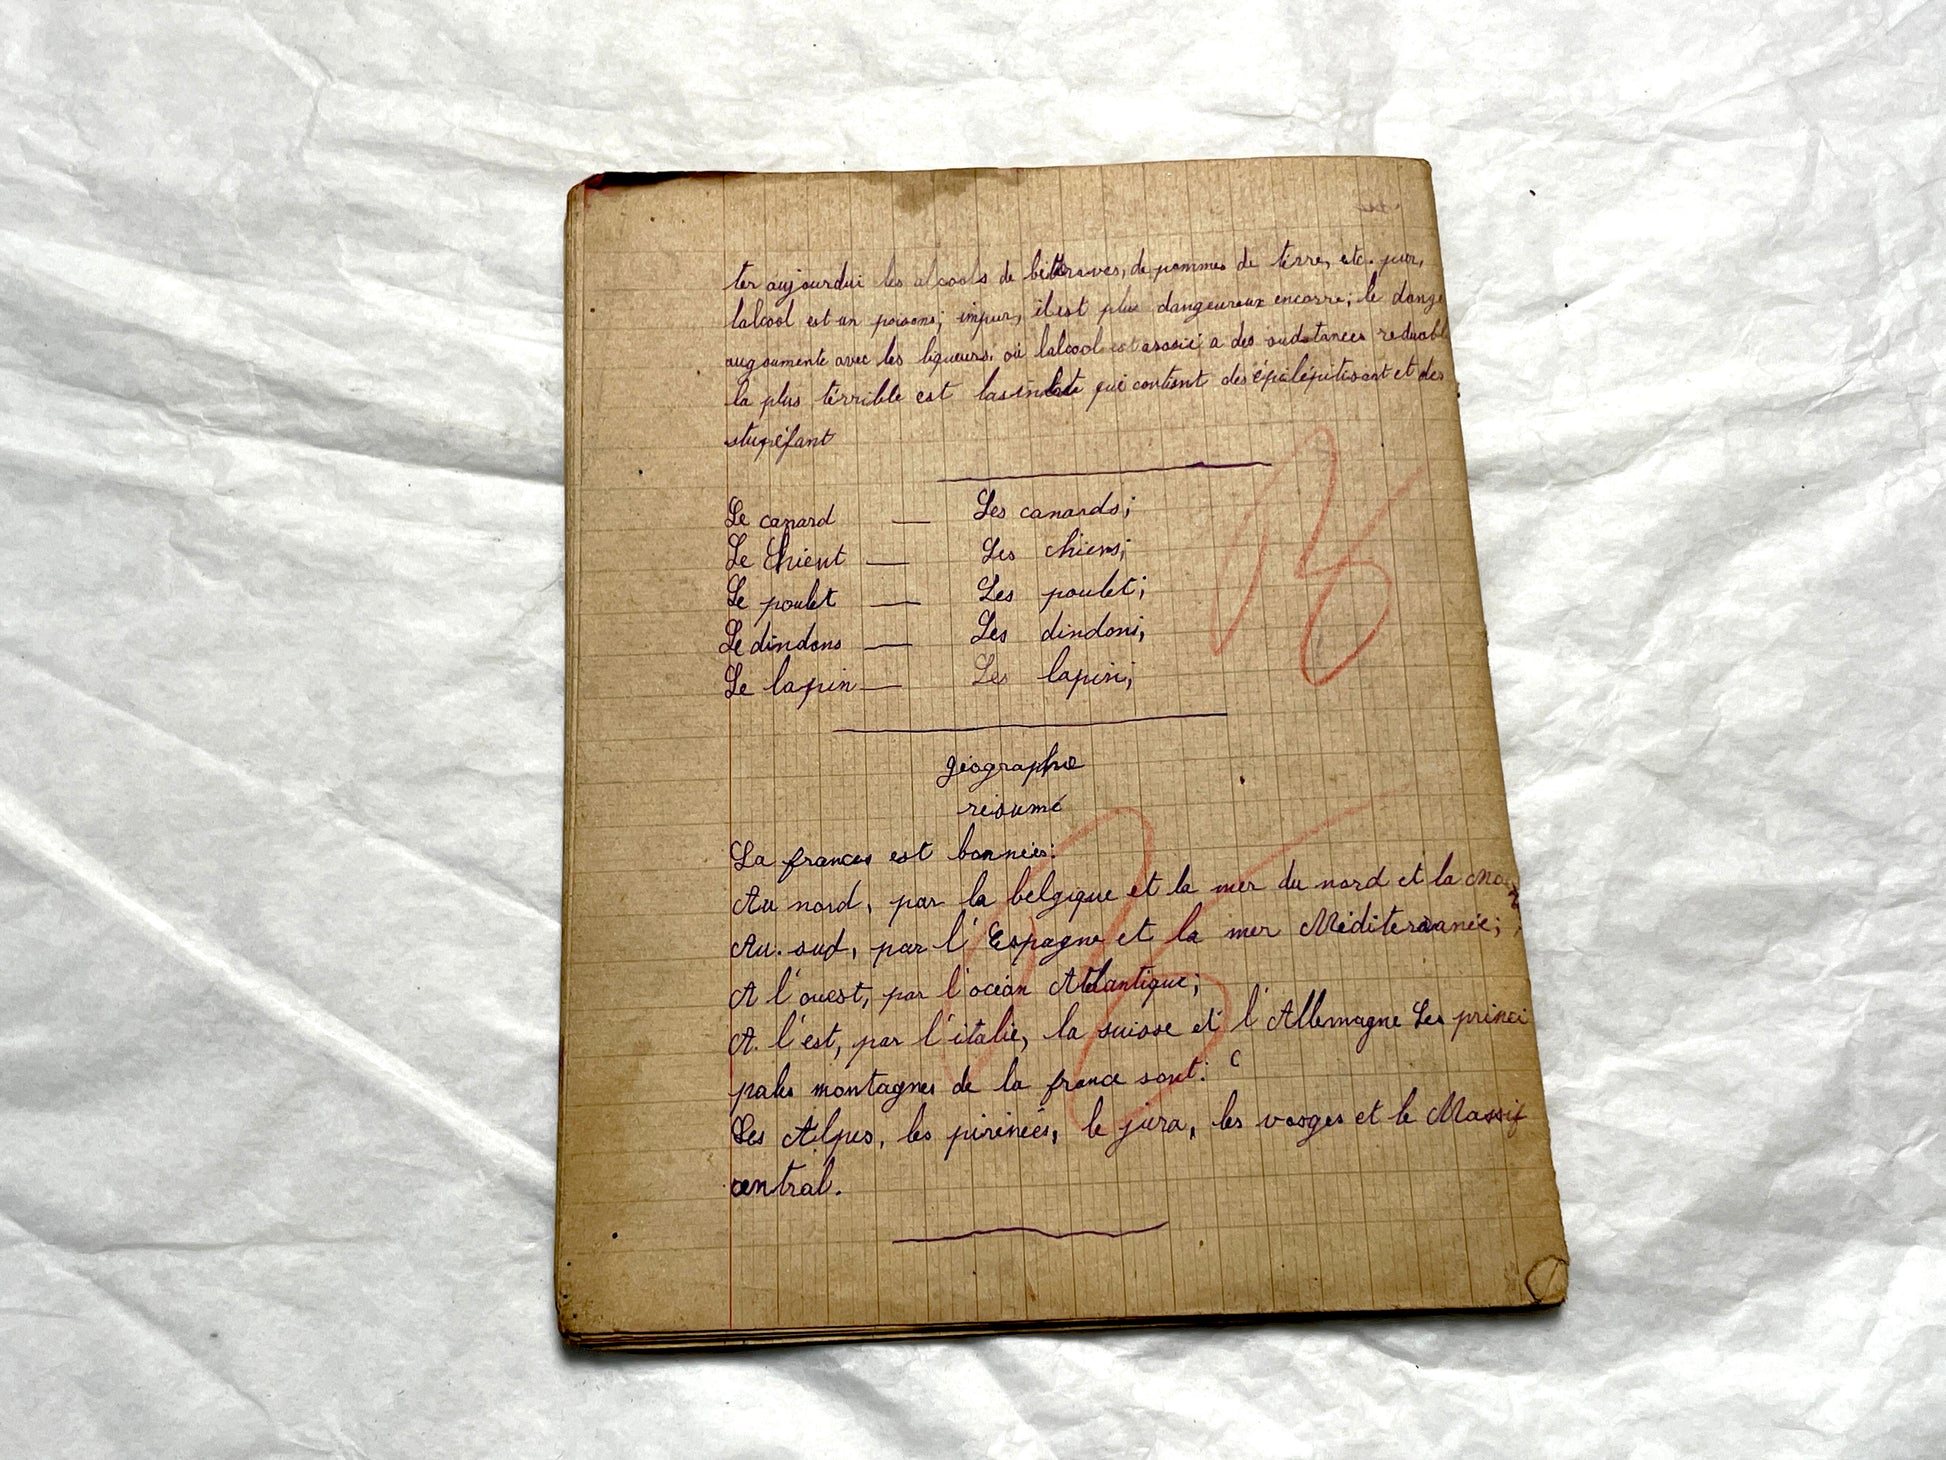 ter aujourdui les alcools de bettraves, de pommes de térre, etc. pur,
lalcool est un poisons; impur, il est plus dangeureux encorre; le dange
augoumente avec les liqueurs. où lalcool est asosié a des sudstances reduable
la plus térrible est qui contient des et des
stupéfant
Le canard — Les canards;
Le Chient — Les chiens;
Le poulet — Les poulet;
Le dindons — Les dindons;
Le lapin — Les lapin;
géographie
résumé
La frances est bornées:
Au nord, par la belgique et la mer du nord et la
Au. sud, par l'Espagne et la mer Méditerranée;
A l'ouest, par l'océan Atlantique;
A. l'est, par l'italie, la suisse et l'Allemagne Les princi
pales montagnes de la france sont: C
Les Alpes, les pirénées, le jura, les vosges et le Massif
central.